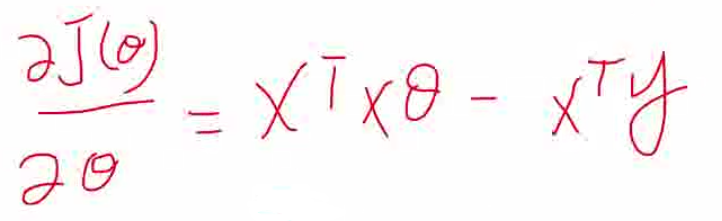 ∂J(θ)/∂θ = X^T X θ - X^T y